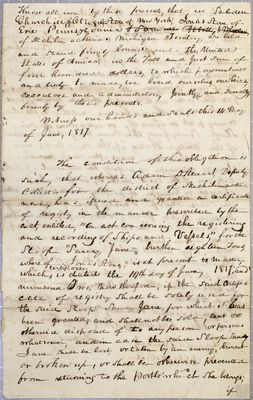 Know all men by these presents, that we Selden
Church of State of New York Louis Stow of
Erie Pennsylvania
of Mackina Michigan Territory, are held
and stand firmly bound unto the United
States of America in the full and just sum of
four hundred dollars, to which payment well
and truly to make, we bind ourselves our heirs
executors and administrators, jointly and severally
firmly by these presents.
Witness our hands and seals this 14 Day
of June, 1817
The condition of this obligation is
such, that whereas Adam D Steuart Deputy
Collector for the district of Michilimackinac
has issued and granted a certificate
of registry in the manner prescribed by the
act entitled "An act concerning the registering
and recording of Ships and Vessels," for the
Sloop Saucy Jane, burthen eighteen Tons
whereof is at present master,
which is dated the 14th day of June 1817, and
numbered Two, Now therefore, if the said certifi-
cate of registry shall be solely used for
the said Sloop Saucy Jane for which it has
been granted, and shall not be sold, lent or
otherwise disposed of to any person or persons
whatsoever, and in case the said Sloop Saucy
Jane shall be lost, or taken by an enemy, burnt
or broken up, or shall be otherwise prevented
from returning to the port to which she belongs,